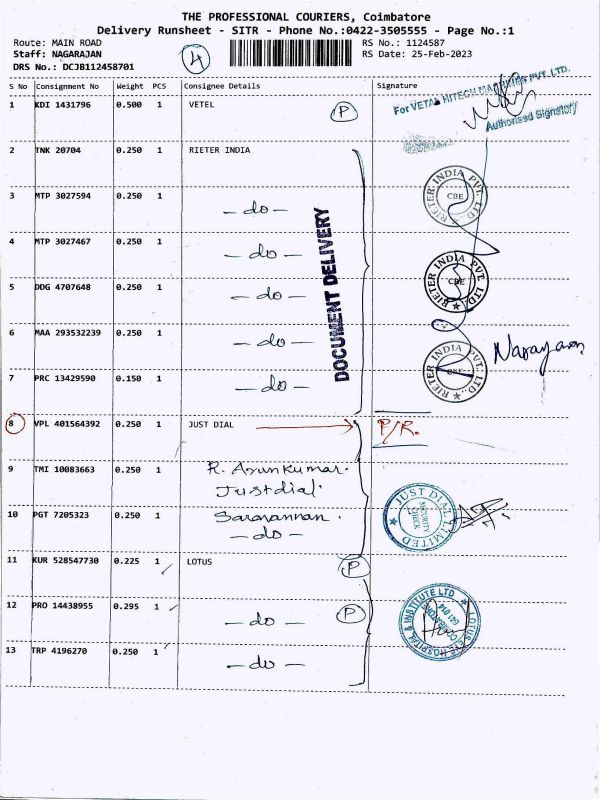 THE PROFESSIONAL COURIERS, Coimbatore
Delivery Runsheet - SITR - Phone No.:0422-3505555 - Page No.:1
Route: MAIN ROAD
Staff: NAGARAJAN
DRS No.: DCJB112458701
4
RS No.: 1124587
RS Date: 25-Feb-2023
S No Consignment No Weight PCS Consignee Details Signature
1 KDI 1431796 0.500 1 VETEL P
For VETAL HITECH MACHINES PVT. LTD.
Authorised Signatory
2 TNK 20704 0.250 1 RIETER INDIA
3 MTP 3027594 0.250 1 - do - RIETER INDIA PVT. LTD CBE
4 MTP 3027467 0.250 1 - do -
DOCUMENT DELIVERY
5 DDG 4707648 0.250 1 - do - RIETER INDIA PVT. LTD CBE
6 MAA 293532239 0.250 1 - do - Narayanan
7 PRC 13429590 0.150 1 - do - RIETER INDIA PVT. LTD. CBE
8 VPL 401564392 0.250 1 JUST DIAL P/R.
9 TMI 10083663 0.250 1 R. Arunkumar.
Justdial.
10 PGT 7205323 0.250 1 Saravannan.
- do -
JUST DIAL LIMITED SECURITY CHECK
11 KUR 528547730 0.225 1 LOTUS P
12 PRO 14438955 0.295 1 - do - P
LOTUS EYE HOSPITAL & INSTITUTE LTD COIMBATORE 641 014
13 TRP 4196270 0.250 1 - do -